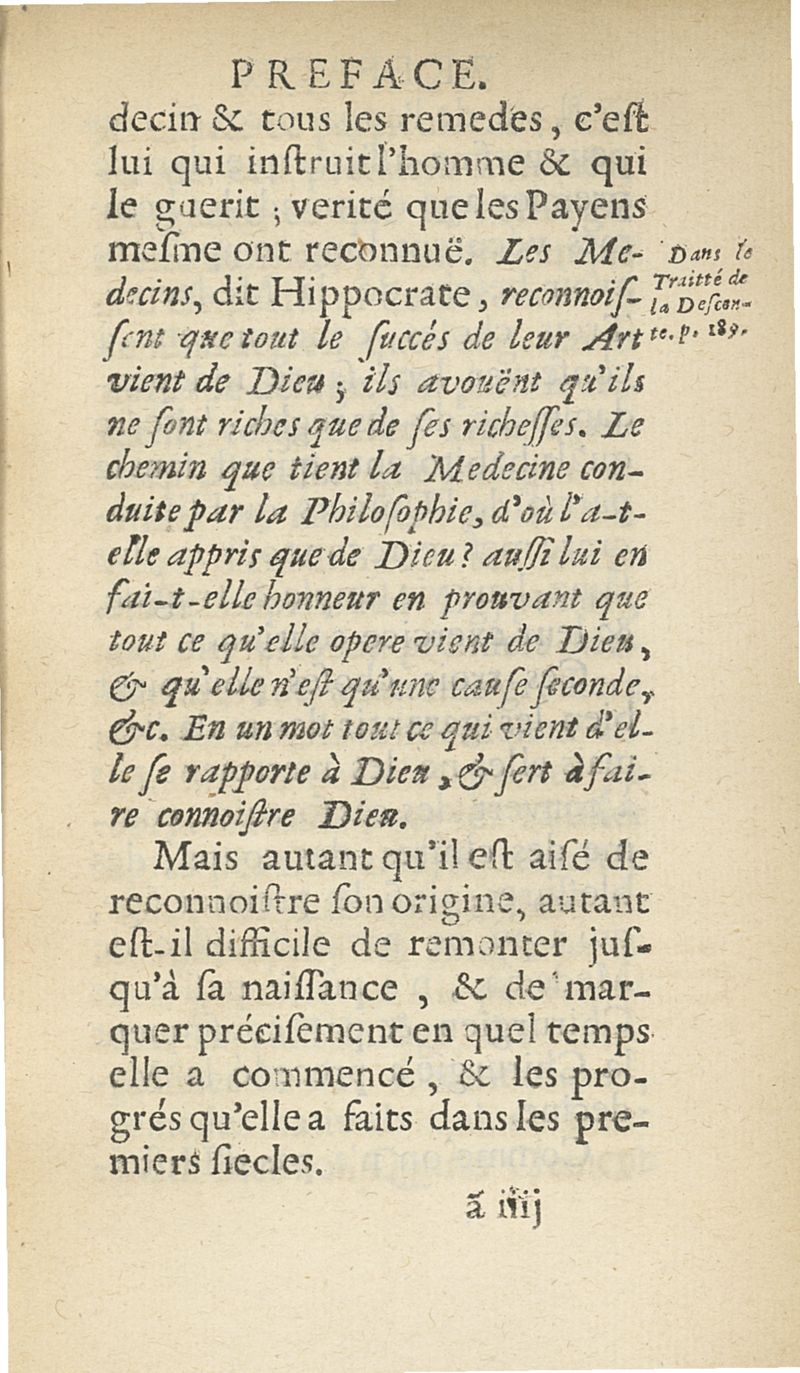 PREFACE.
decin & tous les remedes, c'eſt
lui qui inſtruit l'homme & qui
le guerit ; verité que les Payens
meſme ont reconnuë. Les Me-
decins, dit Hippocrate, reconnoiſ-
ſent que tout le ſuccés de leur Art
vient de Dieu ; ils avouënt qu'ils
ne ſont riches que de ſes richeſſes. Le
chemin que tient la Medecine con-
duite par la Philoſophie, d'où l'a-t-
elle appris que de Dieu ? auſſi lui en
fai-t-elle honneur en prouvant que
tout ce qu'elle opere vient de Dieu,
& qu'elle n'eſt qu'une cauſe ſeconde,
&c. En un mot tout ce qui vient d'el-
le ſe rapporte à Dieu, & ſert à fai-
re connoiſtre Dieu.
Dans le
Traitté de
la Deſcen-
te. p. 189.
Mais autant qu'il eſt aiſé de
reconnoiſtre ſon origine, autant
eſt-il difficile de remonter juſ-
qu'à ſa naiſſance, & de mar-
quer préciſement en quel temps
elle a commencé, & les pro-
grés qu'elle a faits dans les pre-
miers ſiecles.
ã iiij